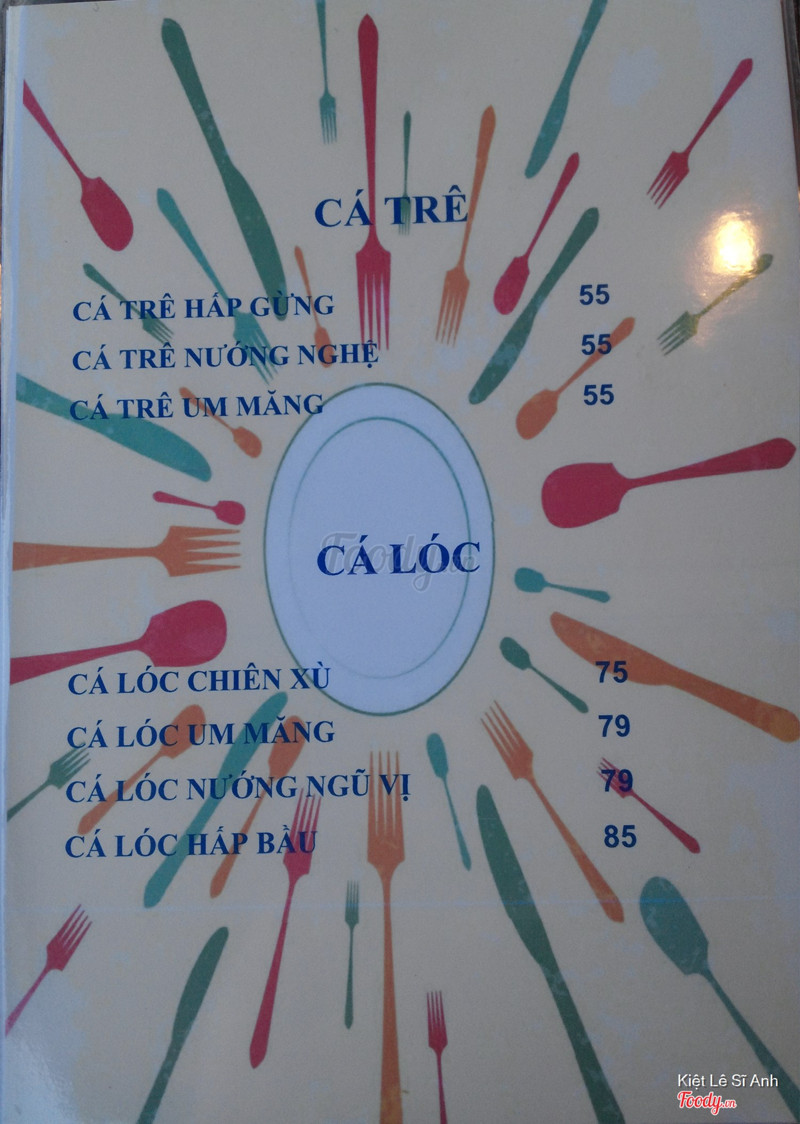 CÁ TRÊ
CÁ TRÊ HẤP GỪNG 55
CÁ TRÊ NƯỚNG NGHỆ 55
CÁ TRÊ UM MĂNG 55
Foody.vn
CÁ LÓC
CÁ LÓC CHIÊN XÙ 75
CÁ LÓC UM MĂNG 79
CÁ LÓC NƯỚNG NGŨ VỊ 79
CÁ LÓC HẤP BẦU 85
Kiệt Lê Sĩ Anh
Foody.vn